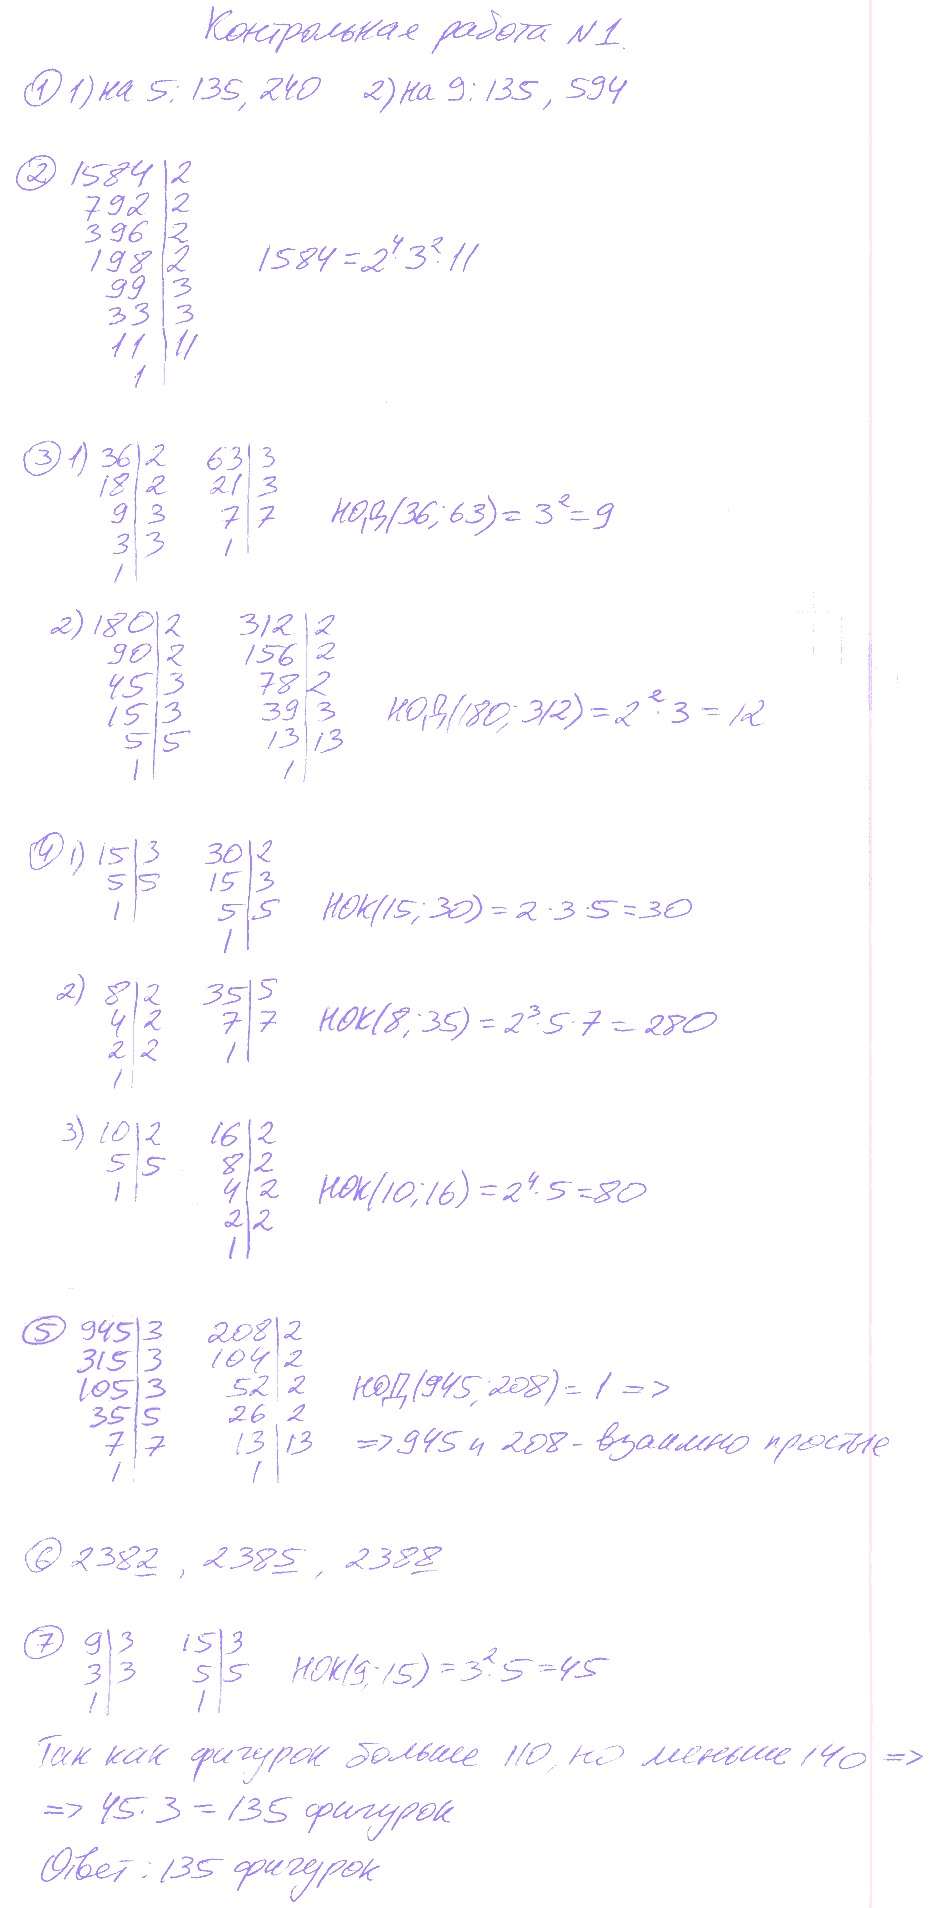 Контрольная работа N1.
① 1) на 5: 135, 240 2) на 9: 135, 594
② 1584 | 2
792 | 2
396 | 2
198 | 2 1584 = 2⁴·3²·11
99 | 3
33 | 3
11 | 11
1 |
③ 1) 36 | 2 63 | 3
18 | 2 21 | 3
9 | 3 7 | 7 НОД(36; 63) = 3² = 9
3 | 3 1 |
1 |
2) 180 | 2 312 | 2
90 | 2 156 | 2
45 | 3 78 | 2
15 | 3 39 | 3 НОД(180; 312) = 2²·3 = 12
5 | 5 13 | 13
1 | 1 |
④ 1) 15 | 3 30 | 2
5 | 5 15 | 3
1 | 5 | 5 НОК(15; 30) = 2·3·5 = 30
1 |
2) 8 | 2 35 | 5
4 | 2 7 | 7 НОК(8; 35) = 2³·5·7 = 280
2 | 2 1 |
1 |
3) 10 | 2 16 | 2
5 | 5 8 | 2
1 | 4 | 2 НОК(10; 16) = 2⁴·5 = 80
2 | 2
1 |
⑤ 945 | 3 208 | 2
315 | 3 104 | 2
105 | 3 52 | 2 НОД(945; 208) = 1 =>
35 | 5 26 | 2
7 | 7 13 | 13 => 945 и 208 - взаимно простые
1 | 1 |
⑥ 2382, 2385, 2388
⑦ 9 | 3 15 | 3
3 | 3 5 | 5 НОК(9; 15) = 3²·5 = 45
1 | 1 |
Так как фигурок больше 110, но меньше 140 =>
=> 45·3 = 135 фигурок
Ответ: 135 фигурок